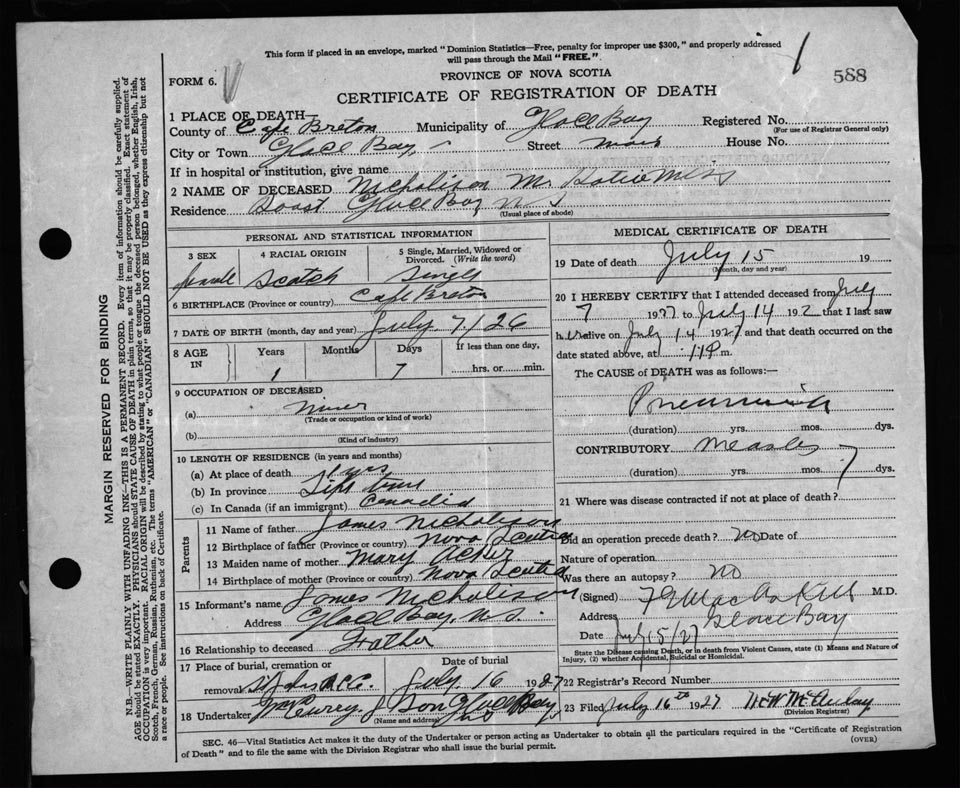 This form if placed in an envelope, marked "Dominion Statistics—Free, penalty for improper use $300," and properly addressed
will pass through the Mail "FREE."
FORM 6.
PROVINCE OF NOVA SCOTIA
588
CERTIFICATE OF REGISTRATION OF DEATH
1 PLACE OF DEATH—
County of Cape Breton Municipality of Glace Bay Registered No.
(For use of Registrar General only)
City or Town Glace Bay, Street House No.
If in hospital or institution, give name
2 NAME OF DECEASED Nicholison
Residence Glace Bay N S
(Usual place of abode)
PERSONAL AND STATISTICAL INFORMATION
3 SEX 4 RACIAL ORIGIN 5 Single, Married, Widowed or Divorced. (Write the word)
Scotch Single
6 BIRTHPLACE (Province or country) Cape Breton
7 DATE OF BIRTH (month, day and year) July. 7/26
8 AGE IN Years Months Days If less than one day,
1 7 hrs. or min.
9 OCCUPATION OF DECEASED
(a)
(Trade or occupation or kind of work)
(b)
(Kind of industry)
10 LENGTH OF RESIDENCE (in years and months)
(a) At place of death 1 yrs
(b) In province
(c) In Canada (if an immigrant)
Parents
11 Name of father James Nicholison
12 Birthplace of father (Province or country) Nova Scotia
13 Maiden name of mother Mary
14 Birthplace of mother (Province or country) Nova Scotia
15 Informant's name James Nicholison
Address Glace Bay, N.S.
16 Relationship to deceased Father
17 Place of burial, cremation or removal Date of burial
July. 16 1927
18 Undertaker Curry. & Son Glace Bay
(Name and address)
MEDICAL CERTIFICATE OF DEATH
19 Date of death July 15 19
(Month, day and year)
20 I HEREBY CERTIFY that I attended deceased from July
7 1927 to July 14 192 that I last saw
h alive on July 14 1927 and that death occurred on the
date stated above, at 11 P m.
The CAUSE of DEATH was as follows:—
Pneumonia
(duration) yrs. mos. dys.
CONTRIBUTORY Measles
(duration) yrs. mos. 7 dys.
21 Where was disease contracted if not at place of death?
Did an operation precede death? No Date of
Nature of operation
Was there an autopsy? No
(Signed) M.D.
Address Glace Bay
Date July 15/27
State the Disease causing Death, or in death from Violent Causes, state (1) Means and Nature of
Injury, (2) whether Accidental, Suicidal or Homicidal.
22 Registrar's Record Number
23 Filed July 16th 1927
(Division Registrar)
SEC. 46—Vital Statistics Act makes it the duty of the Undertaker or person acting as Undertaker to obtain all the particulars required in the "Certificate of Registration
of Death" and to file the same with the Division Registrar who shall issue the burial permit.
(OVER)
MARGIN RESERVED FOR BINDING
N.B.—WRITE PLAINLY WITH UNFADING INK—THIS IS A PERMANENT RECORD. Every item of information should be carefully supplied.
AGE should be stated EXACTLY. PHYSICIANS should STATE CAUSE OF DEATH in plain terms, so that it may be properly classified. Exact statement of
OCCUPATION is very important. RACIAL ORIGIN will be described by stating to what people or tongue the deceased person belonged, whether English, Irish,
Scotch, French, German, Russian, Ruthenian, etc. The terms "AMERICAN" or "CANADIAN" SHOULD NOT BE USED as they express citizenship but not
a race or people. See instructions on back of Certificate.